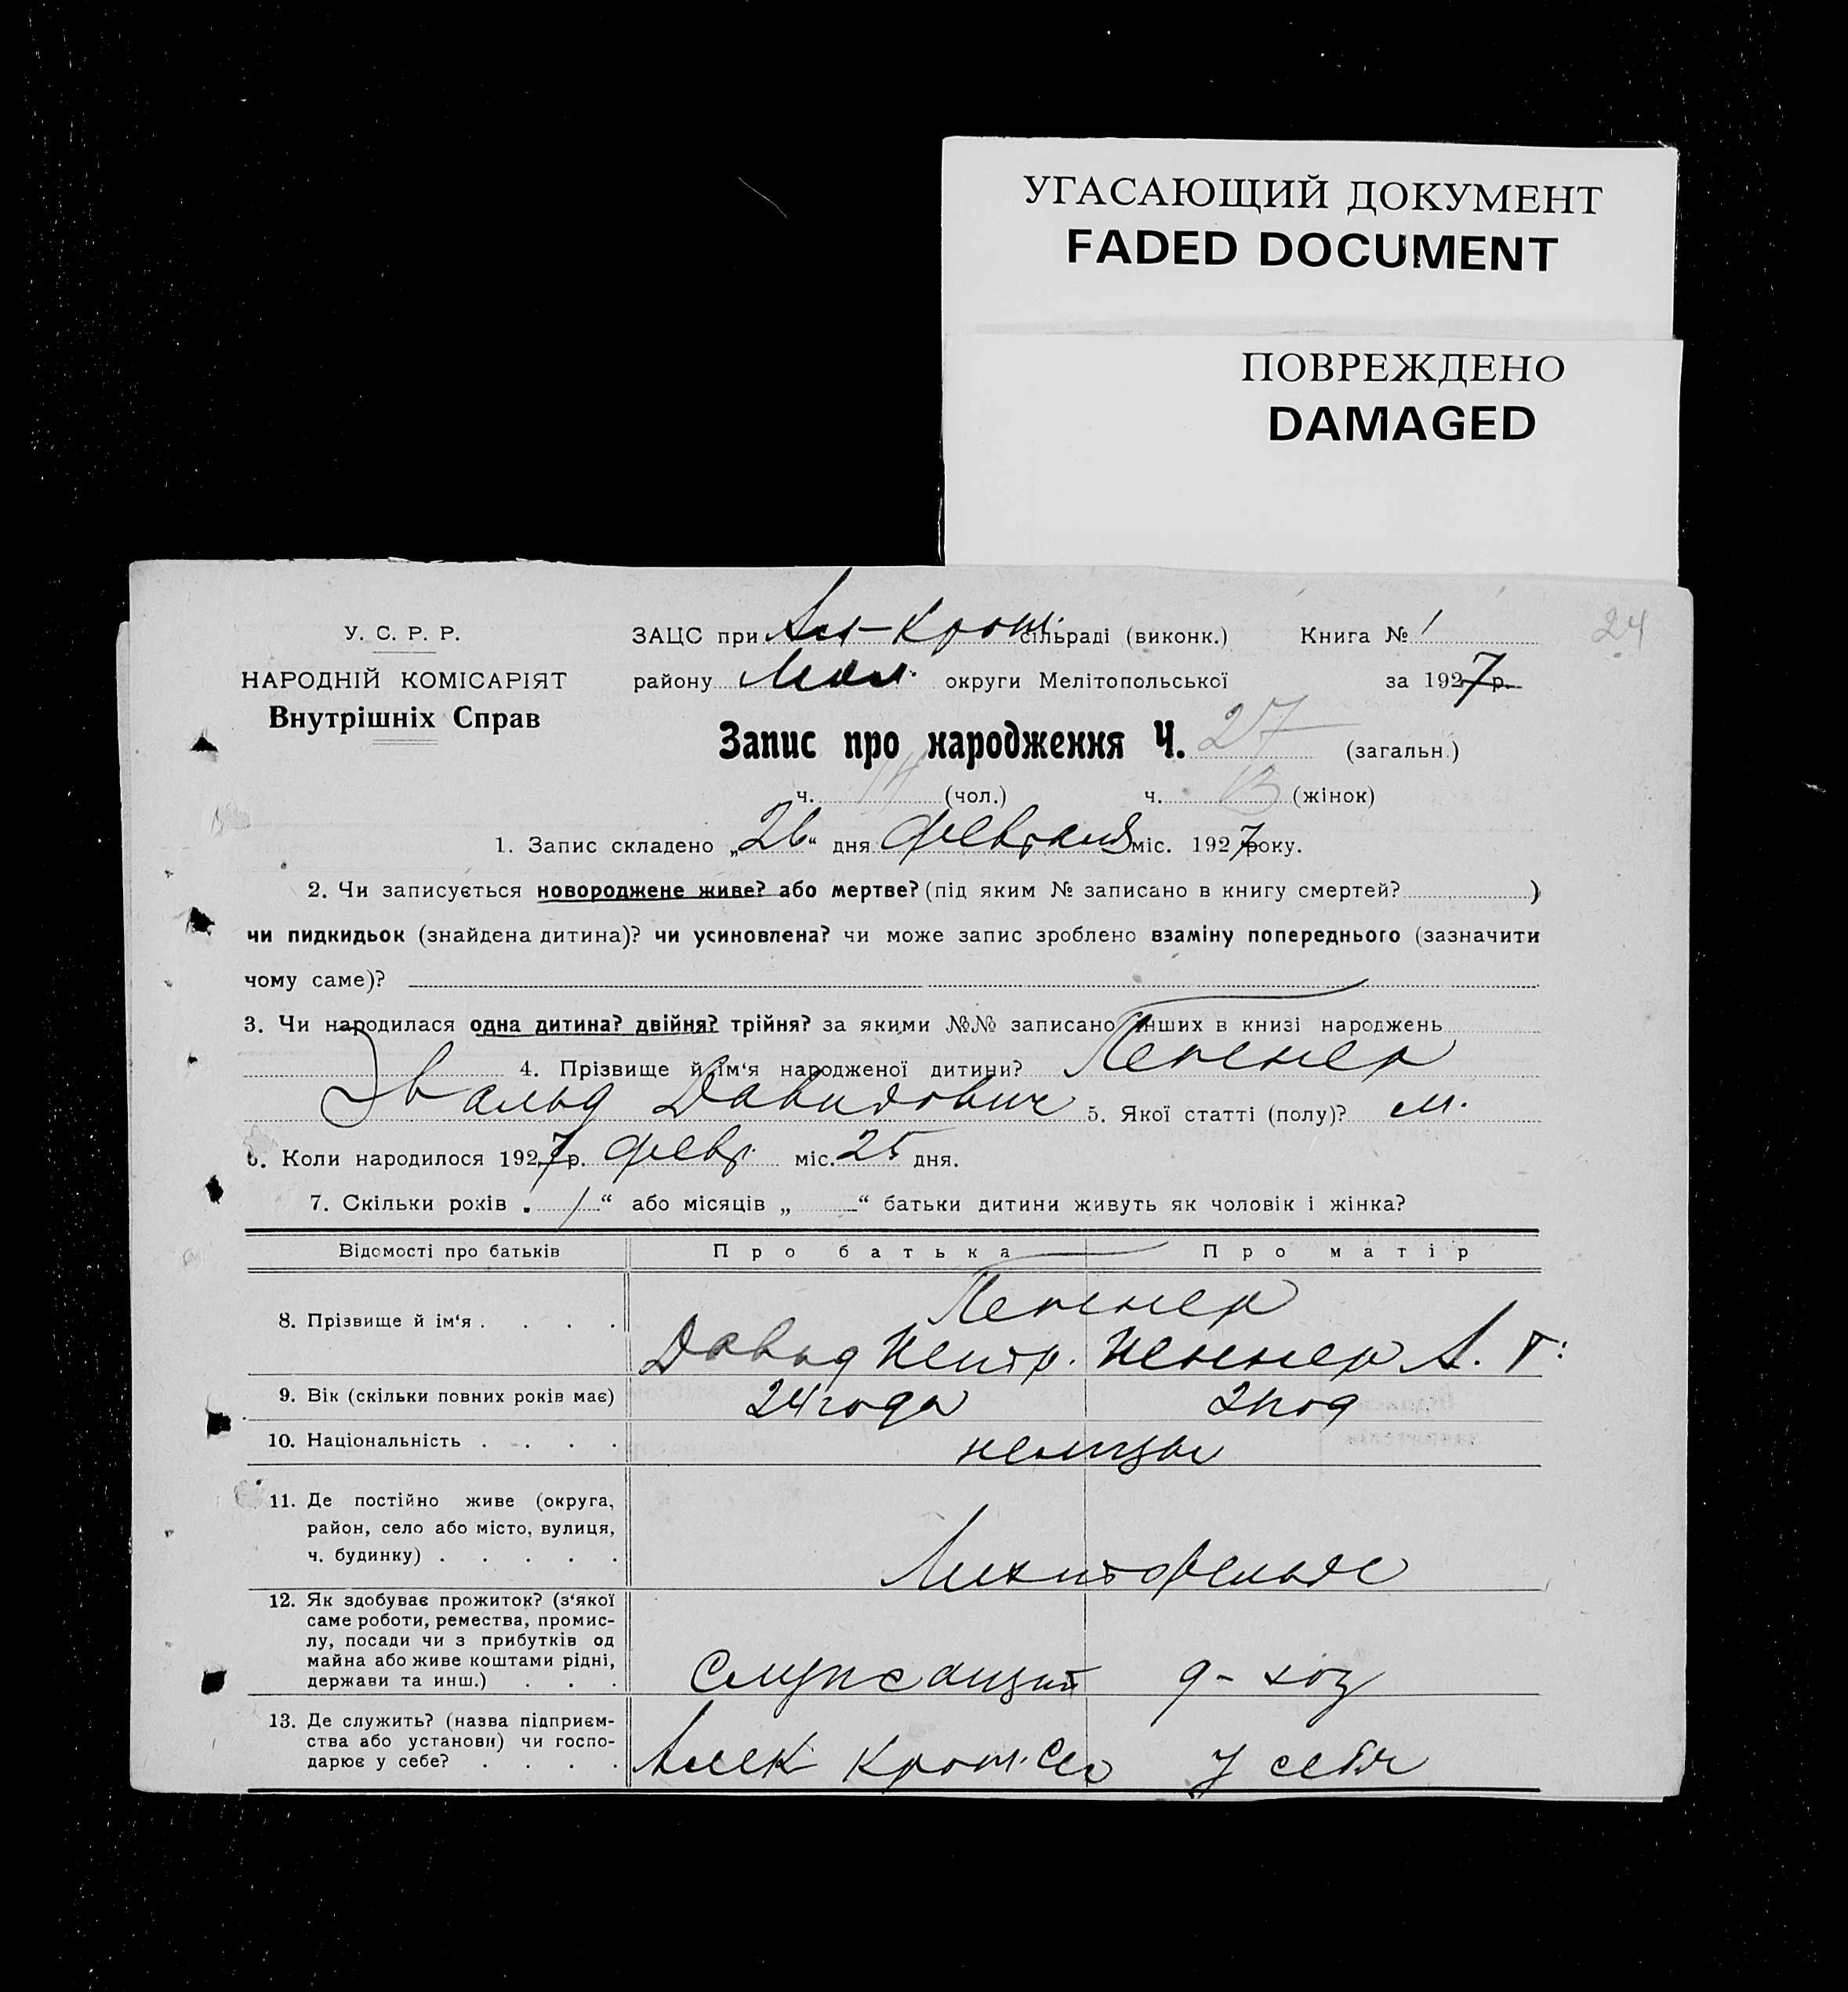 УГАСАЮЩИЙ ДОКУМЕНТ
FADED DOCUMENT
ПОВРЕЖДЕНО
DAMAGED
24
У. С. Р. Р.
НАРОДНІЙ КОМІСАРІЯТ
Внутрішніх Справ
ЗАЦС при Ал-Крош. сільраді (виконк.) Книга № 1
району Мол. округи Мелітопольської за 1927 р.
Запис про народження Ч. 27 (загальн.)
ч. 14 (чол.) ч. 13 (жінок)
1. Запис складено „26“ дня февраля міс. 1927 року.
2. Чи записується новороджене живе? або мертве? (під яким № записано в книгу смертей? )
чи пидкидьок (знайдена дитина)? чи усиновлена? чи може запис зроблено взаміну попереднього (зазначити
чому саме)?
3. Чи народилася одна дитина? двійня? трійня? за якими №№ записано інших в книзі народжень
4. Прізвище й ім‘я народженої дитини?
Эвальд Давидович 5. Якої статті (полу)? м.
6. Коли народилося 1927 р. февр. міс. 25 дня.
7. Скільки років „ 1 “ або місяців „ “ батьки дитини живуть як чоловік і жінка?
Відомості про батьків Про батька Про матір
8. Прізвище й ім‘я . . . .
Давыд А. Г.
9. Вік (скільки повних років має) 24 года 21 год
10. Національність . . . . немцы
11. Де постійно живе (округа,
район, село або місто, вулиця,
ч. будинку) . . . . . Лихтофельде
12. Як здобуває прожиток? (з‘якої
саме роботи, ремества, промис-
лу, посади чи з прибутків од
майна або живе коштами рідні,
держави та инш.) . . . служащий д-хоз
13. Де служить? (назва підприєм-
ства або установи) чи госпо-
дарює у себе? . . . . Алек Крош. у себя